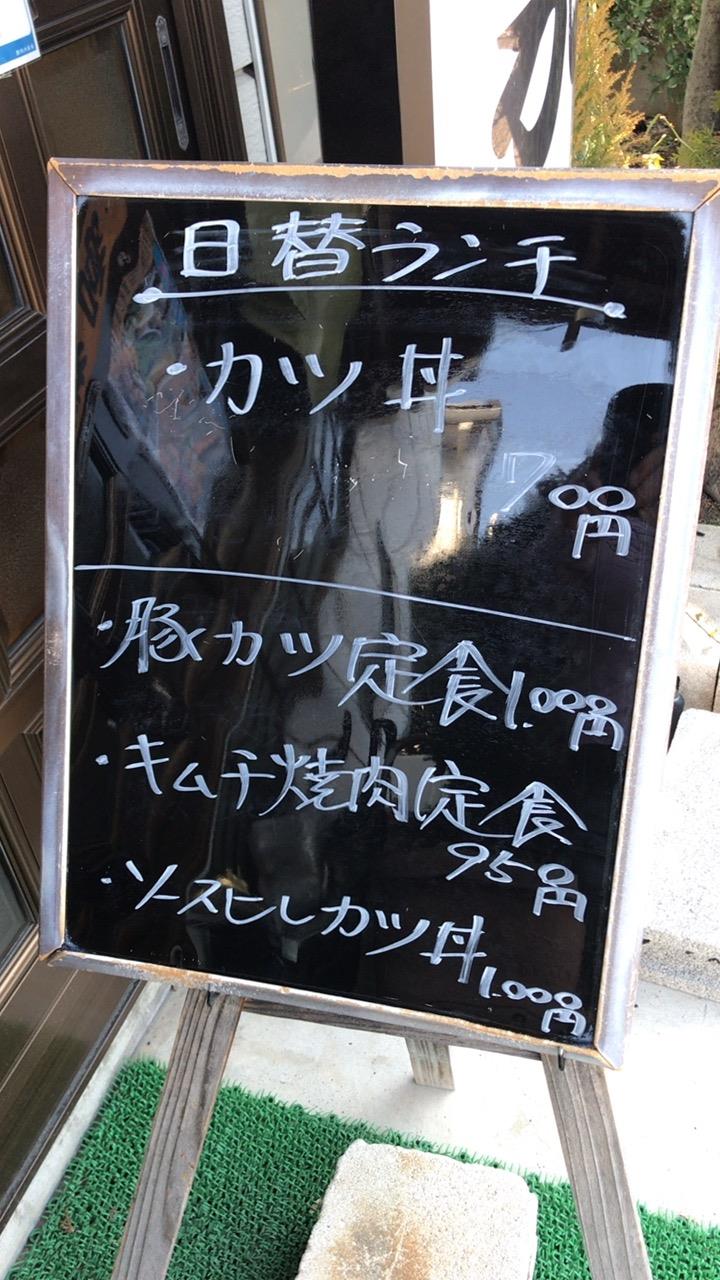 日替ランチ
・カツ丼
700円
・豚カツ定食1.000円
・キムチ焼肉定食
950円
・ソースヒレカツ丼
1.000円